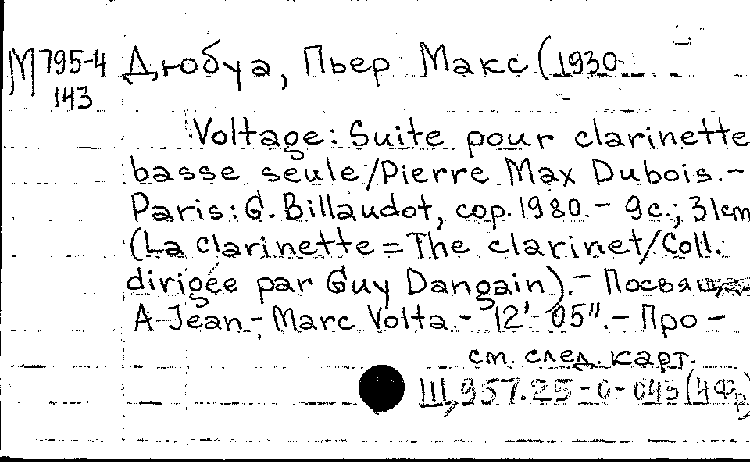 М 795-4 Дюбуа, Пьер Макс (1930-
143
Voltage: Suite pour clarinette
basse seule/Pierre Max Dubois.-
Paris: G. Billaudot, cop. 1980.- 9c.; 31cm
(La clarinette = The clarinet/Coll.
dirigée par Guy Dangain).-
A Jean-Marc Volta.- 12'-05".- Про-
см. след. карт.